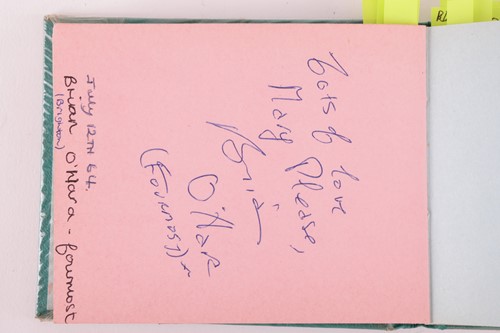 Lots of love
Mary Please,
Brian
O'Hara
(Fourmost) x
July 12TH 64.
Brian O'Hara - fourmost
(Brighton)